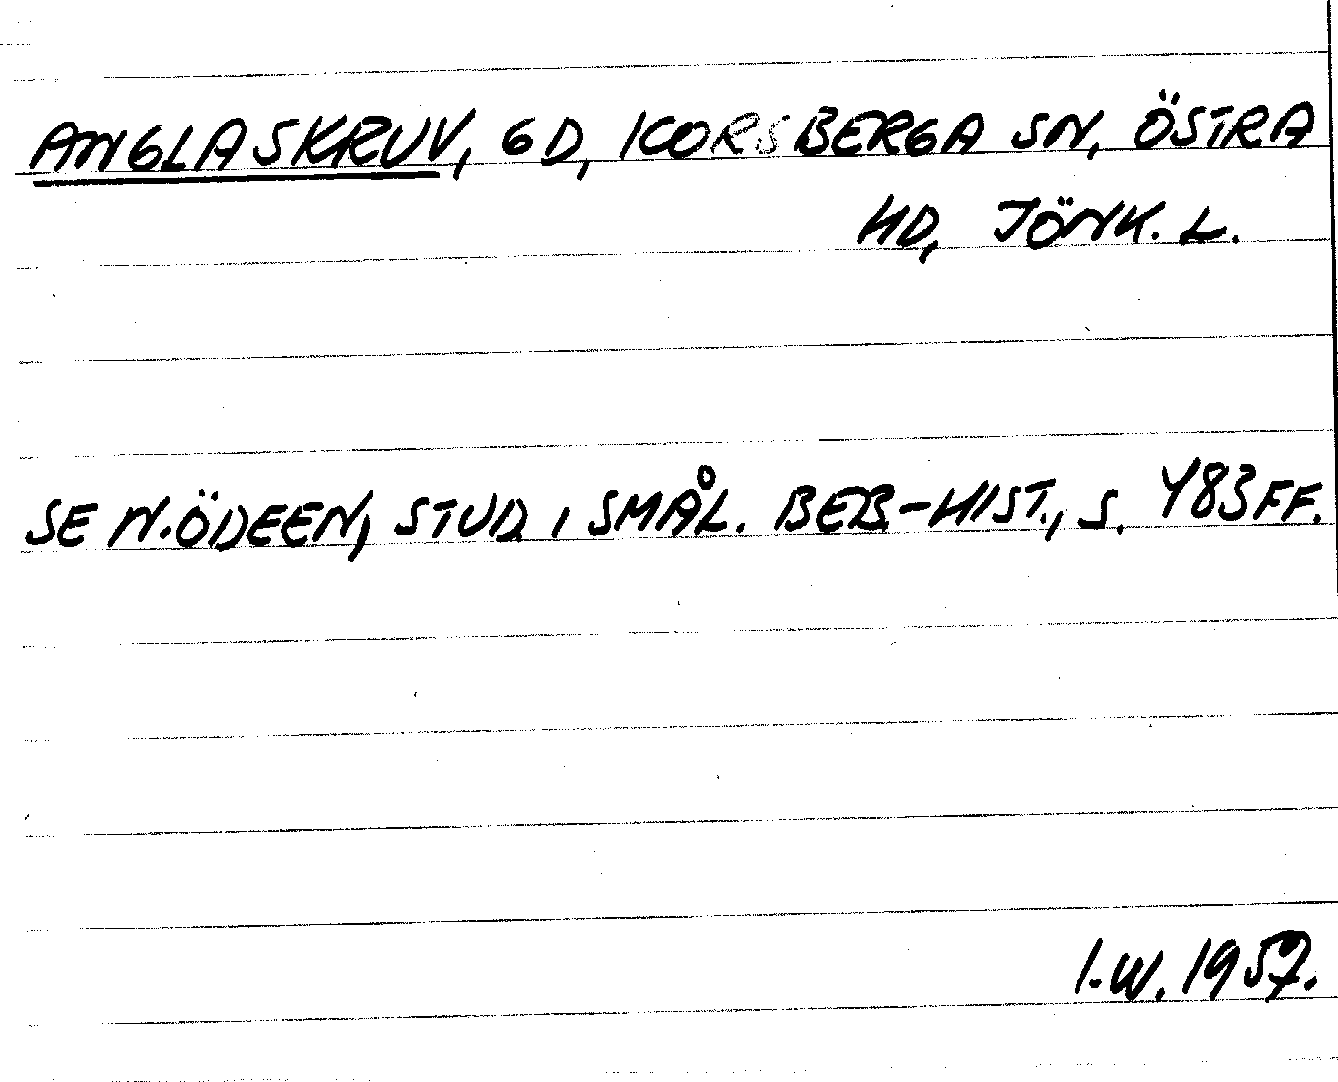 ANGLASKRUV, GD, KORSBERGA SN, ÖSTRA
HD, JÖNK. L.
SE N. ÖDEEN, STUD. I SMÅL. BEB-HIST., S. 483FF.
I.W. 1957.